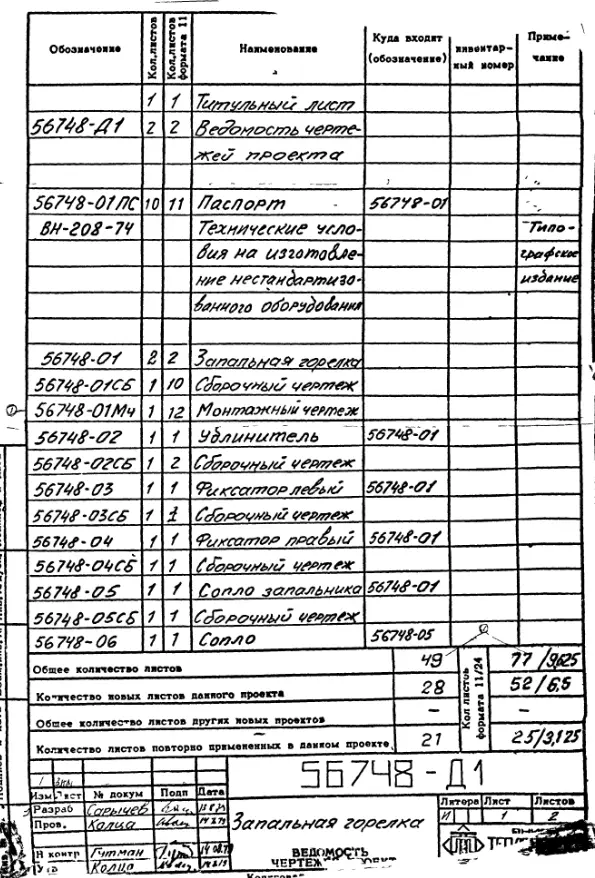 Обозначение Кол.листов Кол.листов формата 11 Наименование Куда входит (обозначение) инвентарный номер Примечание
1 1 Титульный лист
56748-Д1 2 2 Ведомость черте-
жей проекта
56748-01ПС 10 11 Паспорт 56748-01
ВН-208-74 Технические усло- Типо-
вия на изготовле- графское
ние нестандартизо- издание
ванного оборудования
56748-01 2 2 Запальная горелка
56748-01СБ 1 10 Сборочный чертеж
56748-01МЧ 1 12 Монтажный чертеж
56748-02 1 1 Удлинитель 56748-01
56748-02СБ 1 2 Сборочный чертеж
56748-03 1 1 Фиксатор левый 56748-01
56748-03СБ 1 1 Сборочный чертеж
56748-04 1 1 Фиксатор правый 56748-01
56748-04СБ 1 1 Сборочный чертеж
56748-05 1 1 Сопло запальника 56748-01
56748-05СБ 1 1 Сборочный чертеж
56748-06 1 1 Сопло 56748-05
Общее количество листов 49 Кол листов формата 11/24 77/9,625
Количество новых листов данного проекта 28 52/6,5
Общее количество листов других новых проектов — —
Количество листов повторно примененных в данном проекте 21 25/3,125
56748-Д1
Изм Лист № докум Подп Дата
Разраб Сарычев
Пров. Колца
Н контр Гутман
Запальная горелка
ВЕДОМОСТЬ
Литера Лист Листов
И 1 2